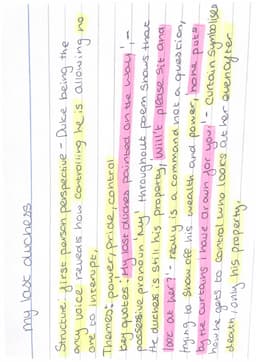 my last duchess
Structure: first person perspective - Duke being the
only voice reveals how controlling he is allowing no
one to interupt.
Themes: power, pride, control
key quotes: 'My last duches painted on the wall' -
possessive pronoun 'My' throughout poem shows that
the duchess is still his property, 'Will't please sit and
look at her?' - really is a command not a question,
trying to show off his wealth and power, 'none puts
by the curtains I have drawn for you' - curtain symbolises
how he gets to control who looks at her even after
death, only his property.